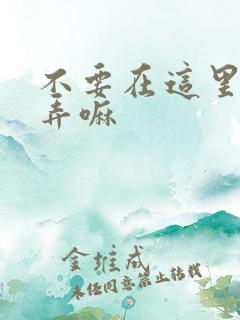 不要在這里
弄嘛
金推成
未经同意禁止转载